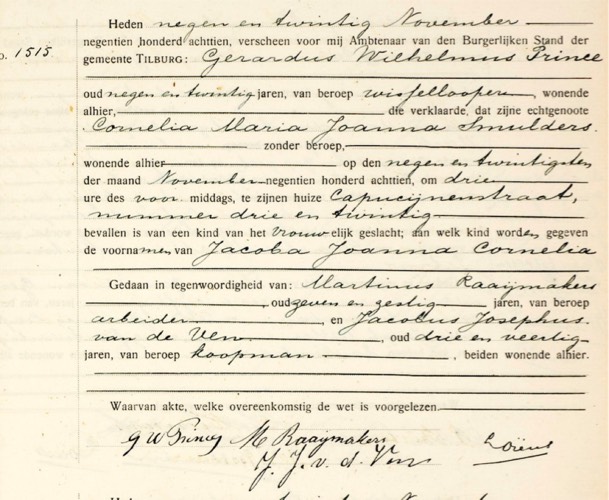 Heden negen en twintig November
negentien honderd achttien, verscheen voor mij Ambtenaar van den Burgerlijken Stand der
o. 1515 gemeente TILBURG: Gerardus Wilhelmus Prince
oud negen en twintig jaren, van beroep wissellooper, wonende
alhier, die verklaarde, dat zijne echtgenoote
Cornelia Maria Joanna Smulders.
zonder beroep,
wonende alhier op den negen en twintigsten
der maand November negentien honderd achttien, om drie
ure des voor middags, te zijnen huize Capucijnenstraat,
nummer drie en twintig
bevallen is van een kind van het vrouwelijk geslacht; aan welk kind worden gegeven
de voornamen van Jacoba Joanna Cornelia
Gedaan in tegenwoordigheid van: Martinus Raaijmakers
, oud zeven en zestig jaren, van beroep
arbeider, en Jacobus Josephus.
van de Ven, oud drie en veertig
jaren, van beroep koopman, beiden wonende alhier.
Waarvan akte, welke overeenkomstig de wet is voorgelezen.
G W Prince M Raaijmakers
J. J. v. d. Ven